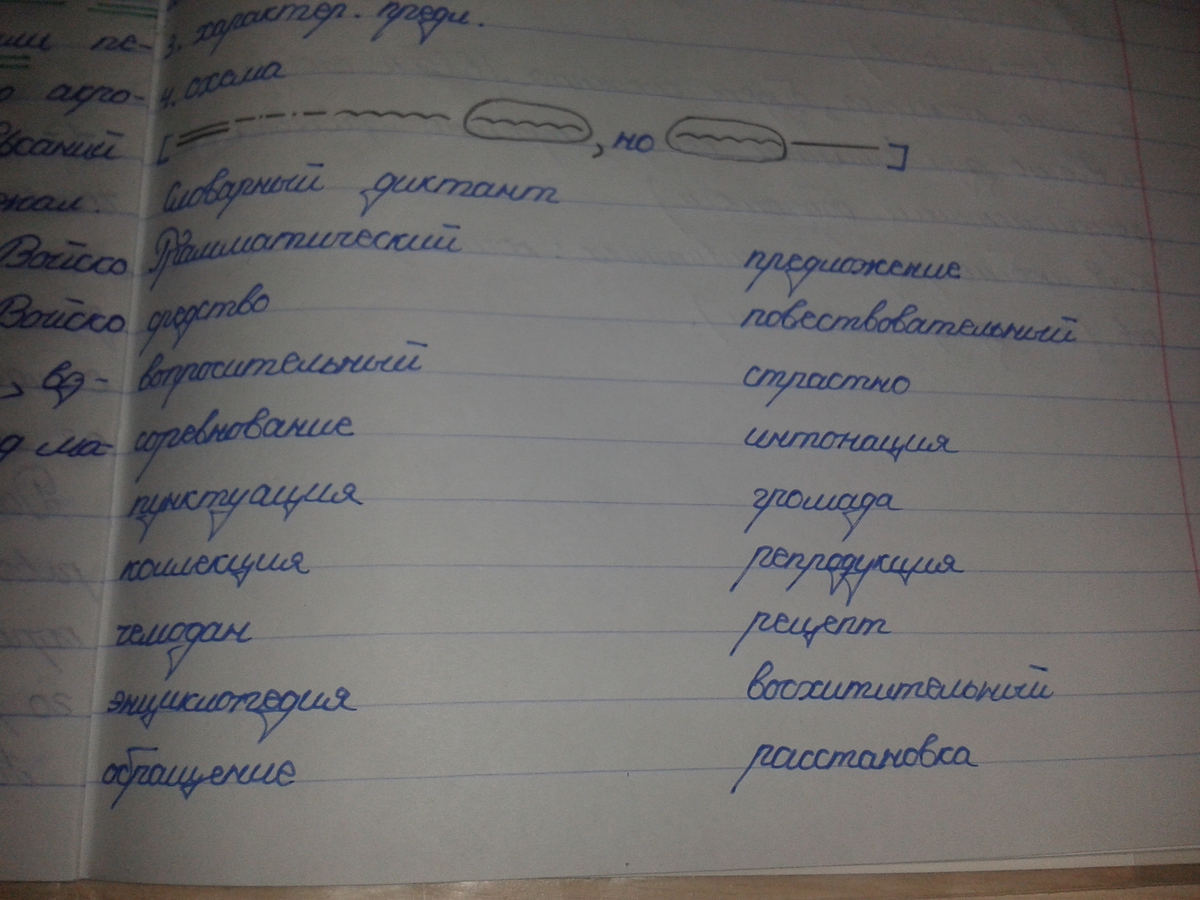 3. характер. предл.
4. схома
[ , но ]
Словарный диктант
Грамматический предложение
средство повествовательный
вопросительный страстно
соревнование интонация
пунктуация громада
коллекция репродукция
чемодан рецепт
энциклопедия восхитительный
обращение расстановка
ми пе-
агро-
нал.
Войско
Войско
, вз-
д ма-